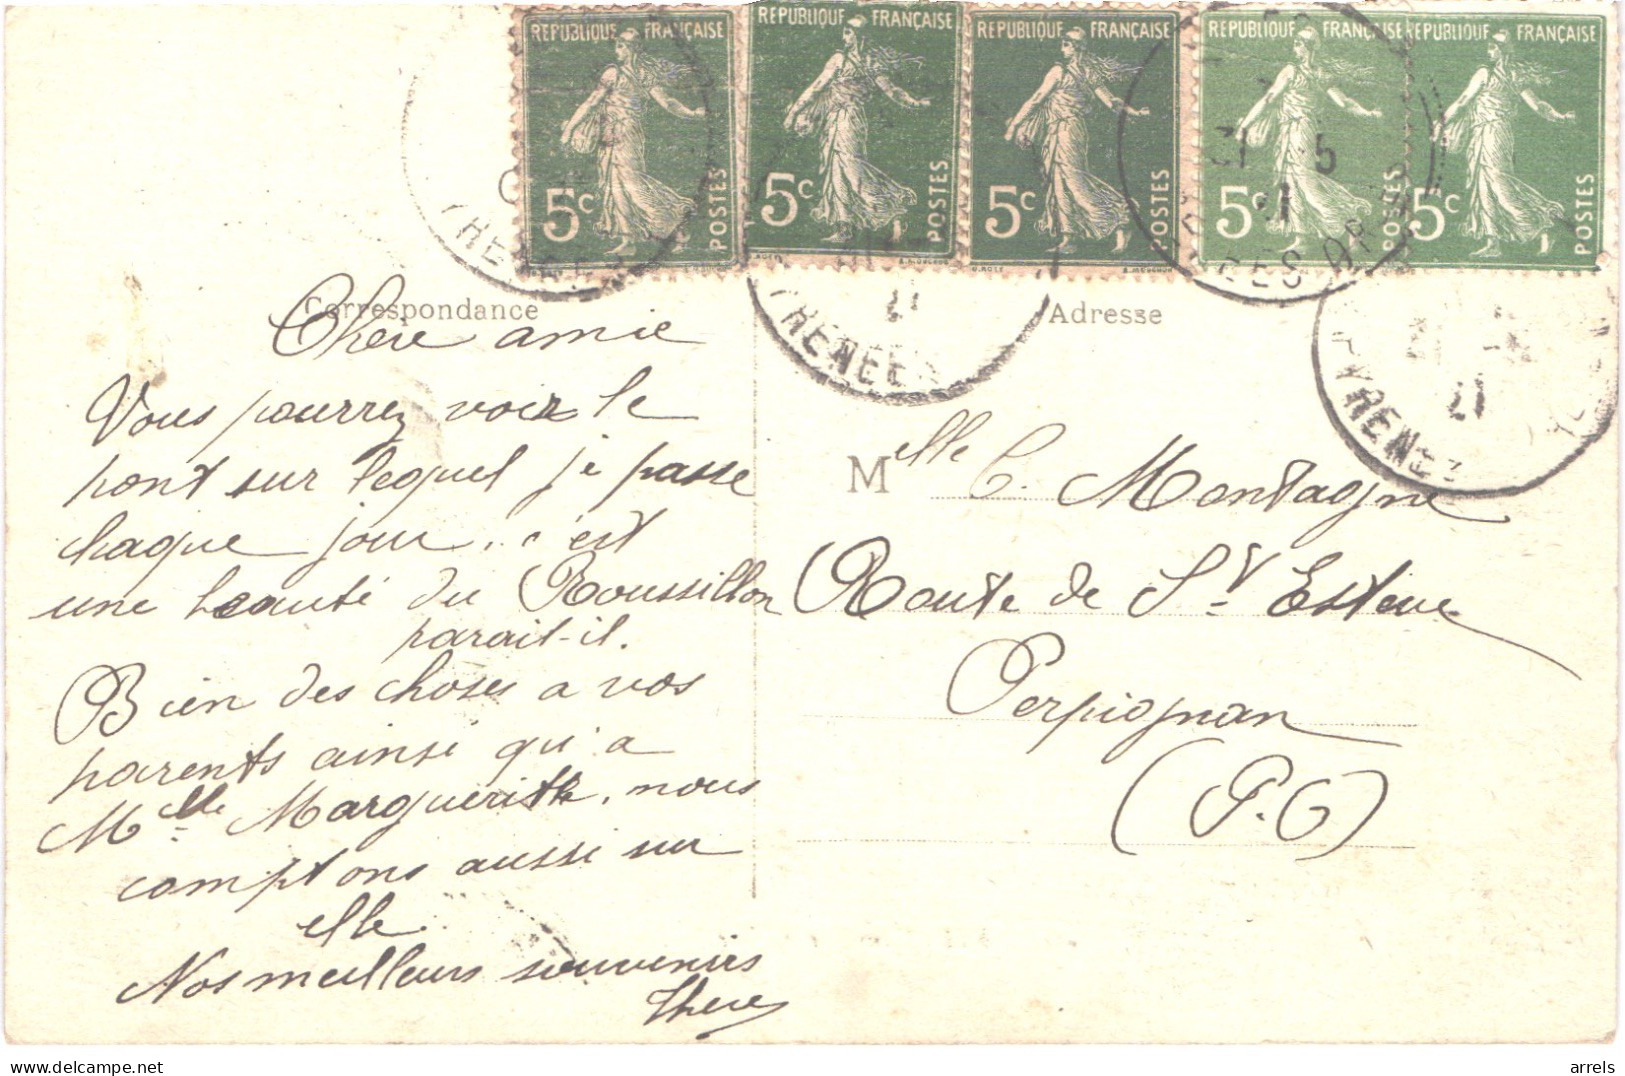 REPUBLIQUE FRANÇAISE
5c POSTES
REPUBLIQUE FRANÇAISE
5c POSTES
REPUBLIQUE FRANÇAISE
5c POSTES
REPUBLIQUE FRANÇAISE
5c POSTES
REPUBLIQUE FRANÇAISE
5c POSTES
21 5
21
Correspondance
Chère amie
Vous pourrez voir le
pont sur lequel je passe
chaque jour, c'est
une beauté du Roussillon
parait-il.
Bien des choses a vos
parents ainsi qu'a
Mlle Marguerite, nous
comptons aussi sur
elle.
Nos meilleurs souvenirs
Adresse
Melle C. Montagne
Route de St Estève
Perpignan
(P.O)
arrels